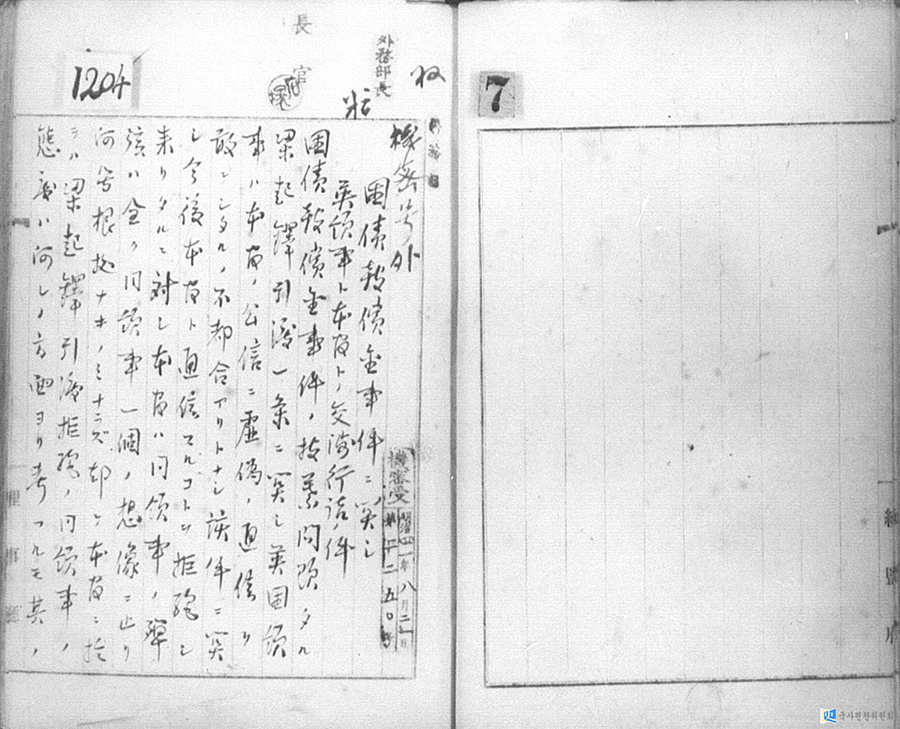 7
1204
長官
外務部長
機密号外
機密受
明治四一年八月二一日
國債報償金事件ニ関シ
英領事ト本官トノ交渉行詰ノ件
國債報償金事件ノ枝葉問題タル
梁起鐸引渡一条ニ関シ英国領
事ハ本官ノ公信ニ虚偽ノ通信ヲ
敢ニシタルノ不都合アリトナシ該件ニ関
シ今後本官ト通信スルコトヲ拒絶シ
来リタルニ対シ本官ハ同領事ノ弾
該ハ全ク同領事一個ノ想像ニ止リ
何等根拠ナキノミナラズ却ケ本官ニ於
テハ梁起鐸引渡拒絶ノ同領事ノ
態度ハ何レノ方面ヨリ考フルモ其ノ
統監府
理事廳
국사편찬위원회